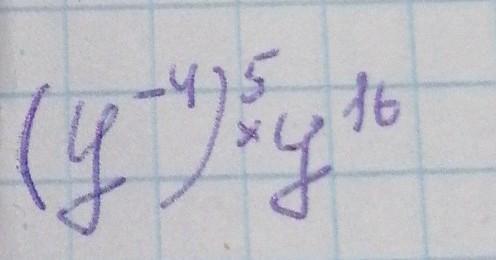 (y⁻⁴)⁵ × y¹⁶